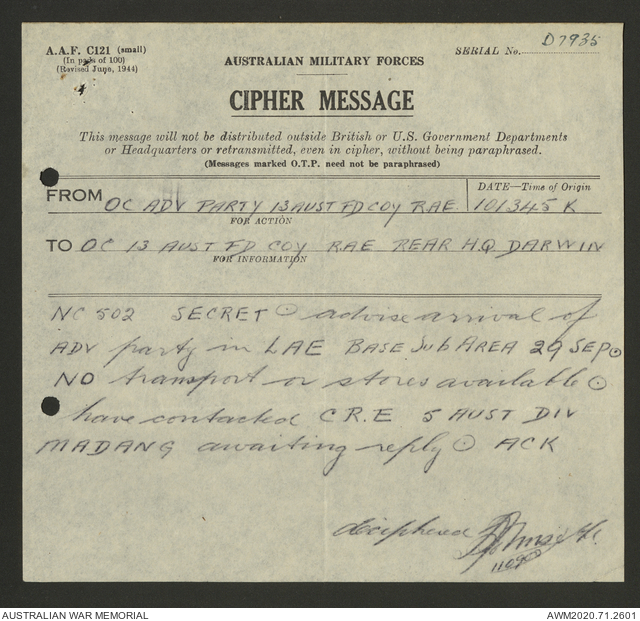 A.A.F. C121 (small)
(In pads of 100)
(Revised June, 1944)
SERIAL No. D7935
AUSTRALIAN MILITARY FORCES
CIPHER MESSAGE
This message will not be distributed outside British or U.S. Government Departments
or Headquarters or retransmitted, even in cipher, without being paraphrased.
(Messages marked O.T.P. need not be paraphrased)
FROM OC ADV PARTY 13 AUST FD COY RAE.
DATE—Time of Origin
101345 K
FOR ACTION
TO OC 13 AUST FD COY RAE REAR H.Q. DARWIN
FOR INFORMATION
NC 502 SECRET ⊙ advise arrival of
ADV party in LAE BASE Sub AREA 29 SEP ⊙
NO transport or stores available ⊙
have contacted C.R.E 5 AUST DIV
MADANG awaiting reply ⊙ ACK
deciphered
AUSTRALIAN WAR MEMORIAL
AWM2020.71.2601